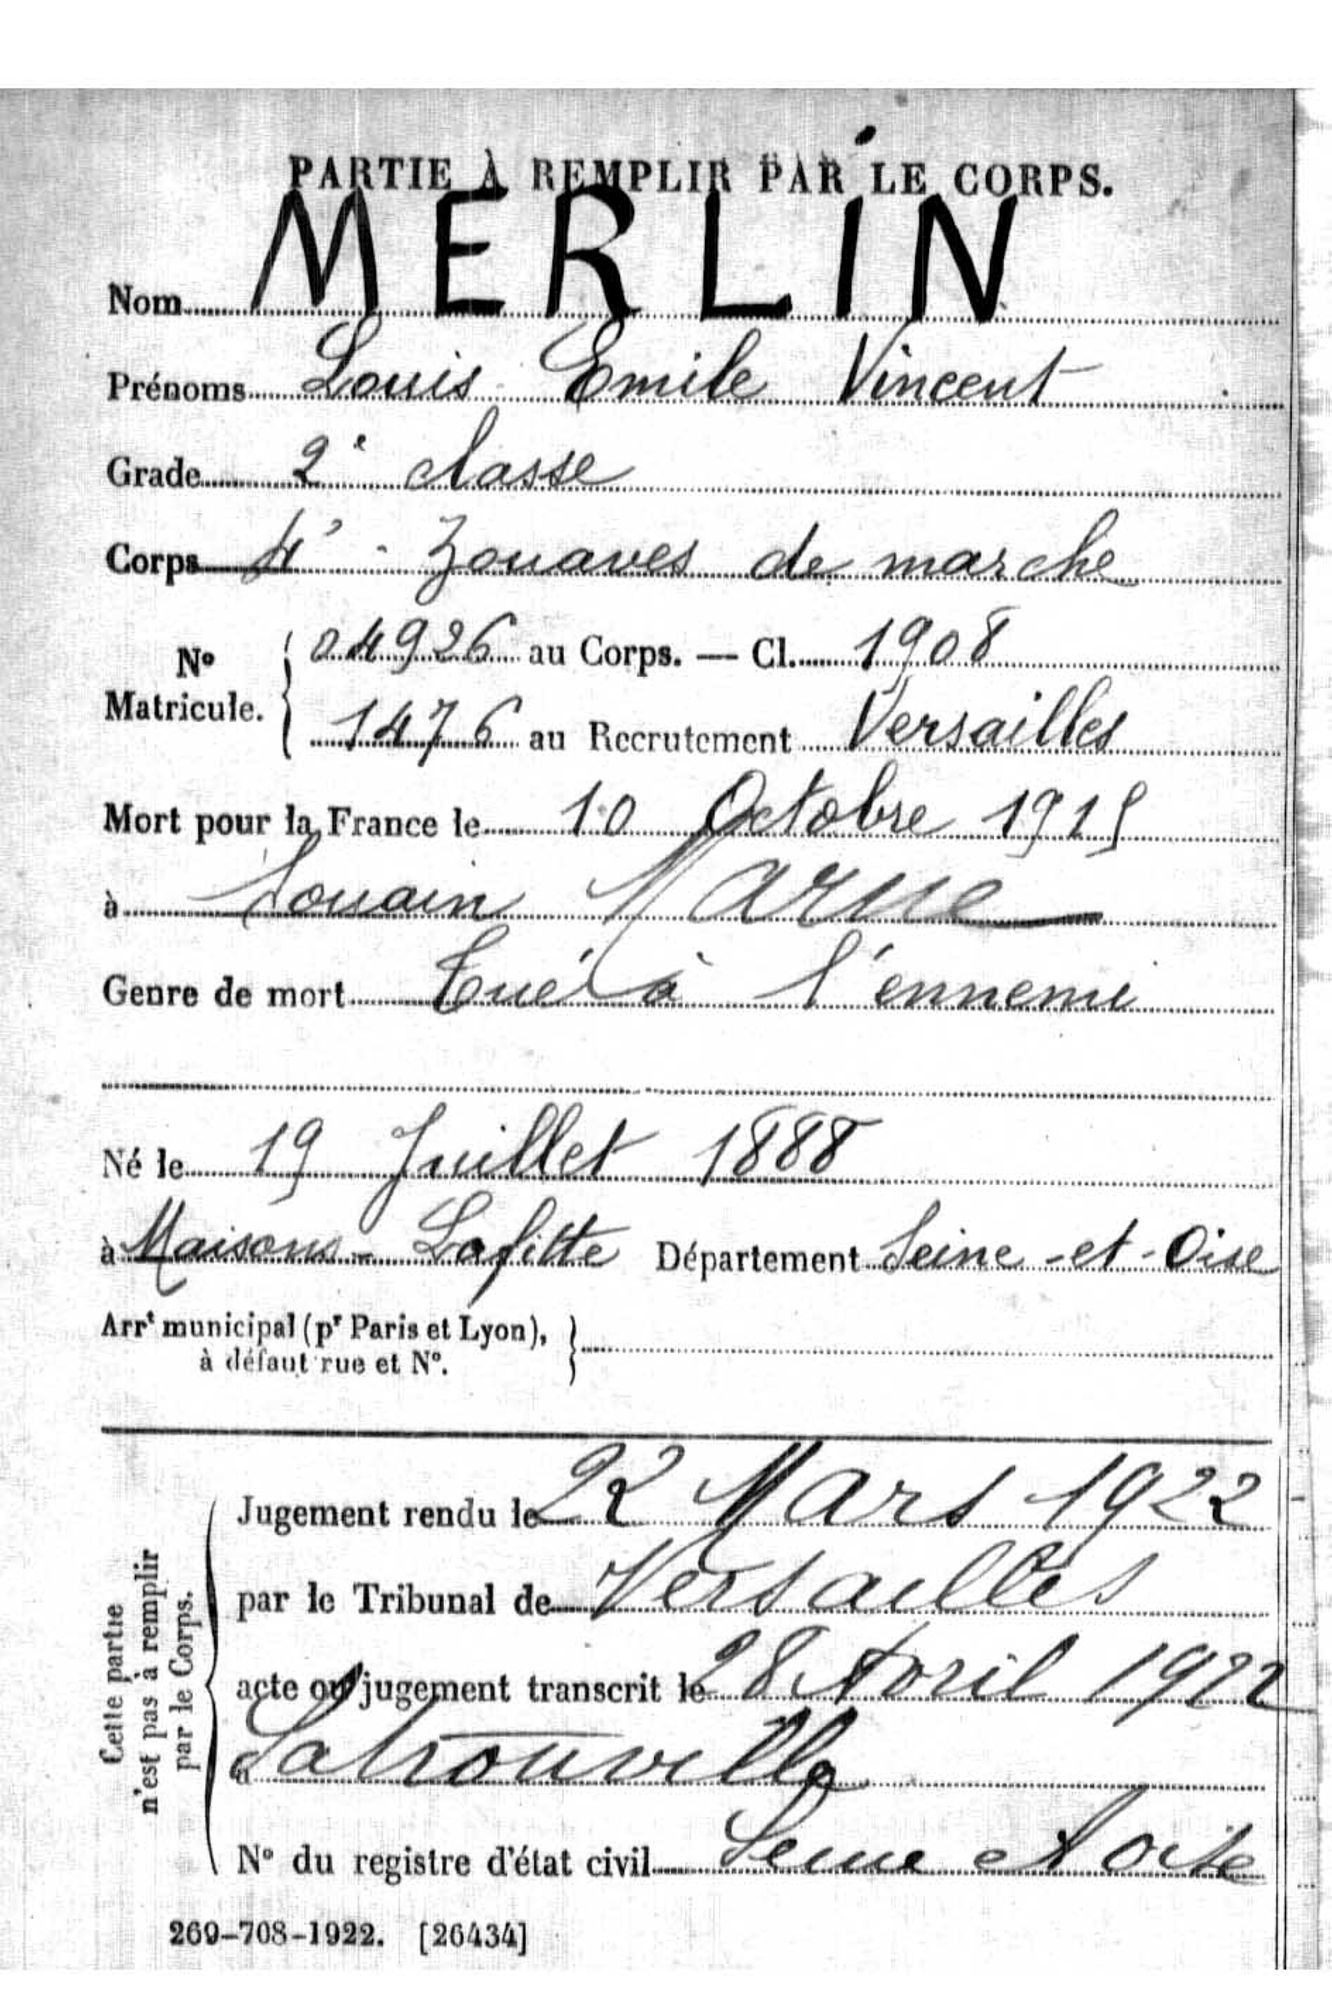 PARTIE À REMPLIR PAR LE CORPS.
Nom MERLIN
Prénoms Louis Emile Vincent
Grade 2e classe
Corps 4e Zouaves de marche
No Matricule. { 04926 au Corps. — Cl. 1908
1476 au Recrutement Versailles
Mort pour la France le 10 Octobre 1915
à Souain Marne
Genre de mort Tué à l'ennemi
Né le 19 Juillet 1888
à Maisons-Lafitte Département Seine-et-Oise
Arrt municipal (pr Paris et Lyon), }
à défaut rue et No.
Cette partie
n'est pas à remplir
par le Corps.
Jugement rendu le 22 Mars 1922
par le Tribunal de Versailles
acte ou jugement transcrit le 28 Avril 1922
à Sartrouville
No du registre d'état civil Seine et Oise
269-708-1922. [26434]